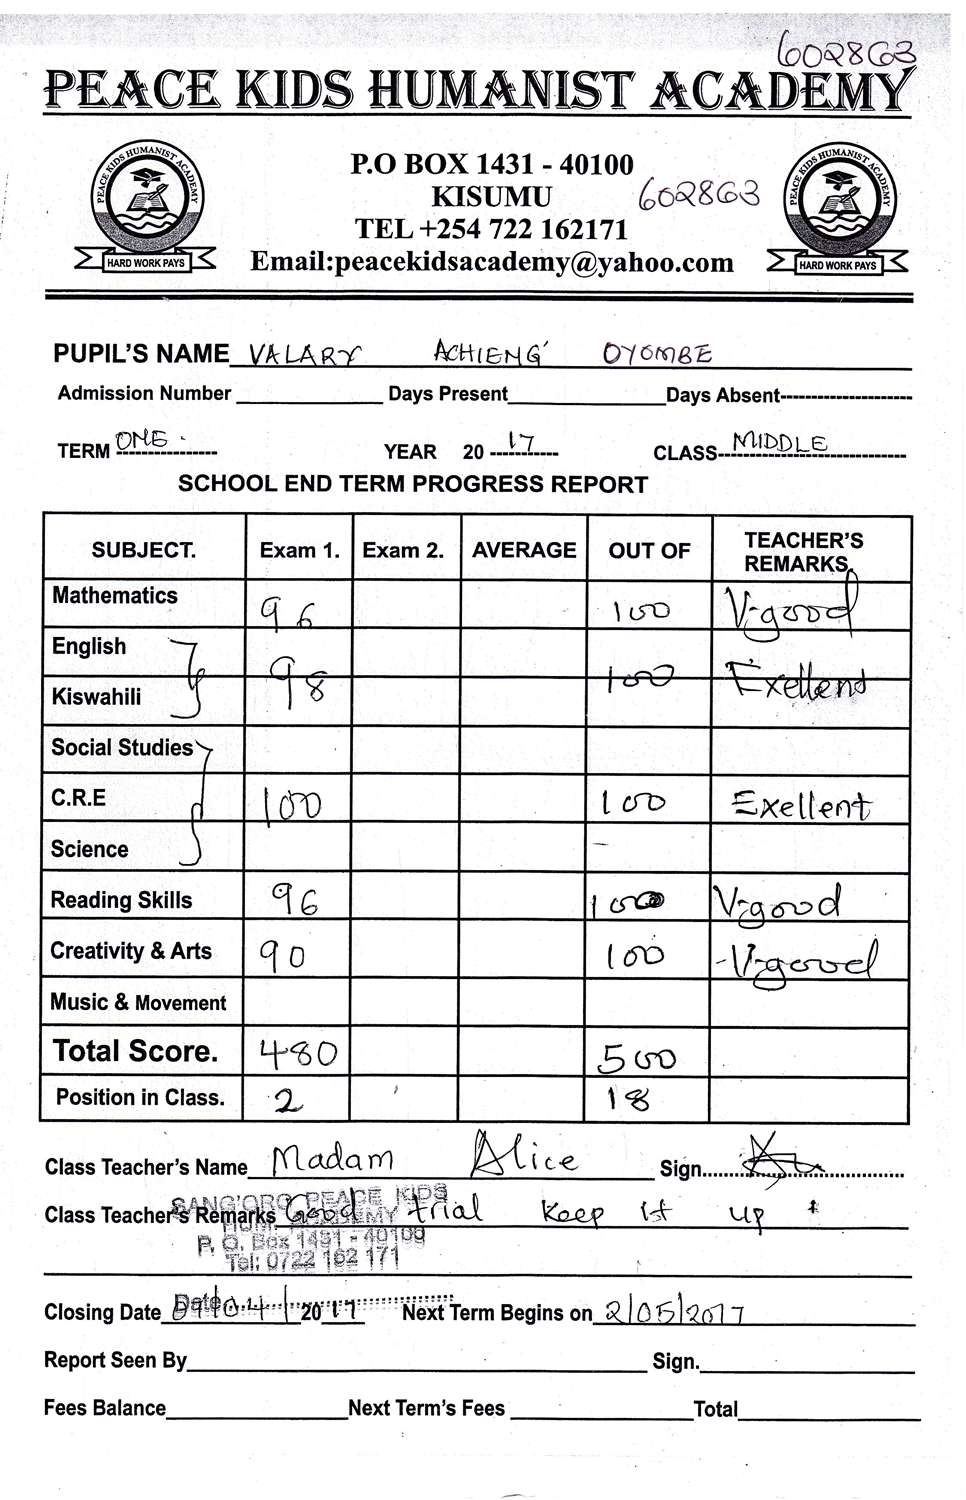 602863
PEACE KIDS HUMANIST ACADEMY
PEACE KIDS HUMANIST ACADEMY
HARD WORK PAYS
P.O BOX 1431 - 40100
KISUMU
602863
TEL +254 722 162171
Email:peacekidsacademy@yahoo.com
PEACE KIDS HUMANIST ACADEMY
HARD WORK PAYS
PUPIL'S NAME VALARY ACHIENG' OYOMBE
Admission Number Days Present Days Absent
TERM ONE. YEAR 20 17 CLASS MIDDLE
SCHOOL END TERM PROGRESS REPORT
SUBJECT. Exam 1. Exam 2. AVERAGE OUT OF TEACHER'S REMARKS.
Mathematics 96 100 V-good
English
98 100 Exellend
Kiswahili
Social Studies
C.R.E 100 100 Exellent
Science
Reading Skills 96 100 V-good
Creativity & Arts 90 100 V-good
Music & Movement
Total Score. 480 500
Position in Class. 2 18
Class Teacher's Name Madam Alice Sign.
SANG'ORO PEACE KIDS
Class Teacher's Remarks Good trial Keep it up
HUM. ACADEMY
P. O. Box 1431 - 40100
Tel: 0722 162 171
Date
Closing Date 04/2017 Next Term Begins on 2/05/2017
Report Seen By Sign.
Fees Balance Next Term's Fees Total